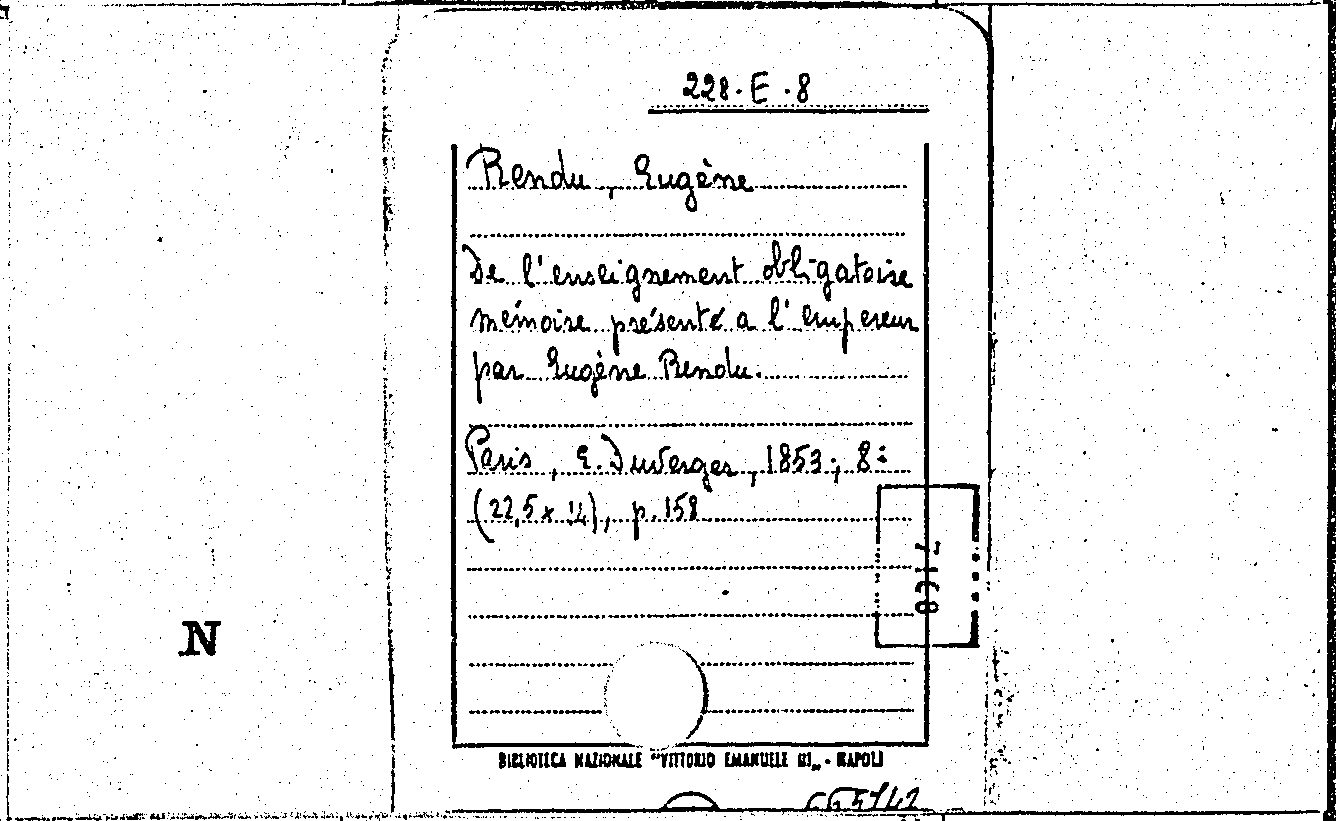 228.E.8
Rendu, Eugène
De l'enseignement obligatoire
mémoire présenté a l'empereur
par Eugène Rendu.
Paris, E. Duverger, 1853; 8:
(22,5 x 14), p. 158
N
BIBLIOTECA NAZIONALE "VITTORIO EMANUELE III„ - NAPOLI